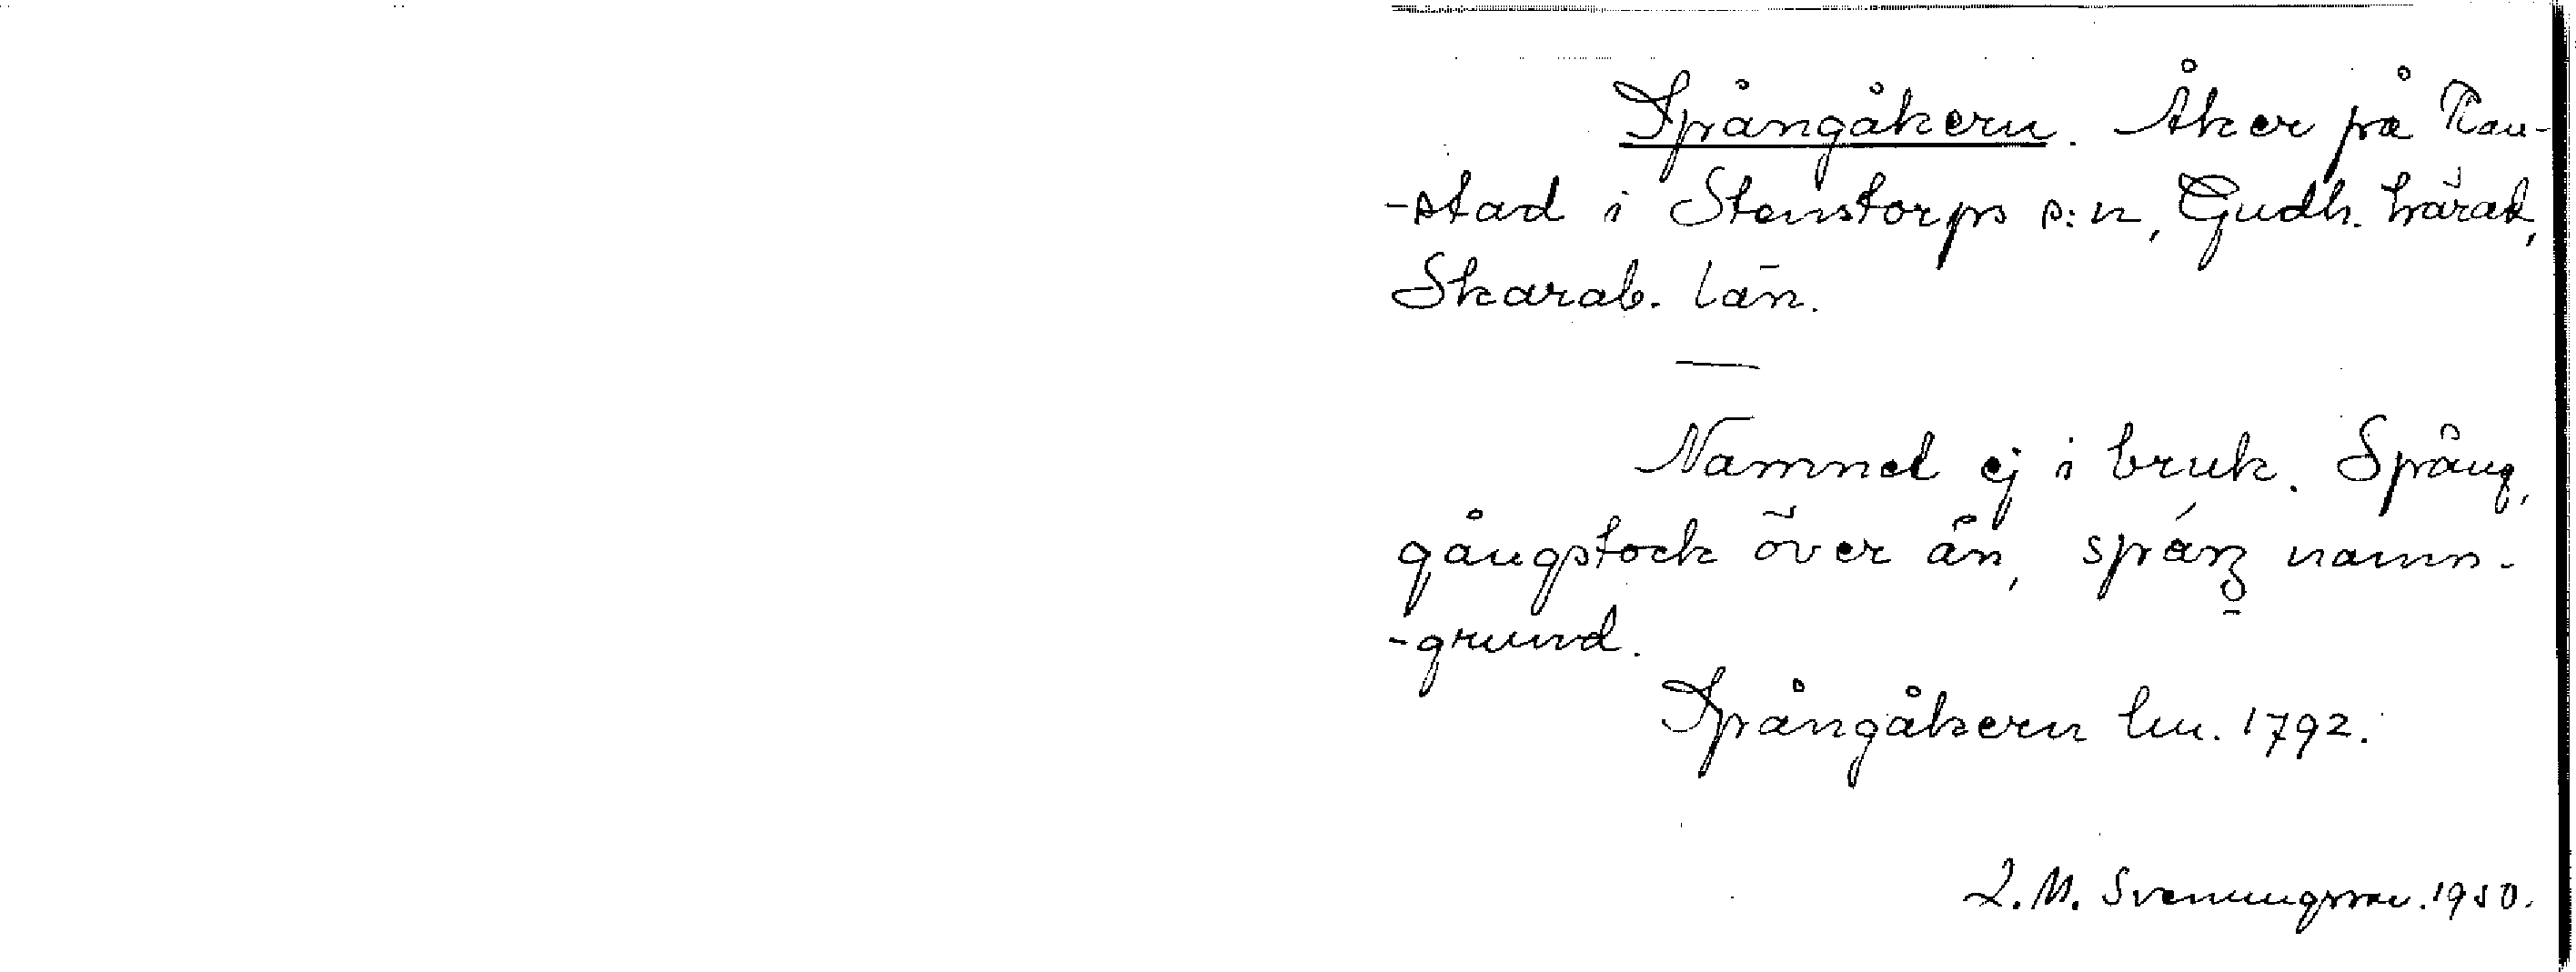 Spångåkern. Åker på Rau-
-stad i Stenstorps s:n, Gudh. härad,
Skarab. län.
Namnet ej i bruk. Spång,
gångstock över ån, namn-
-grund.
Spångåkern lm. 1792.
L. M. Svenungsson. 1950.